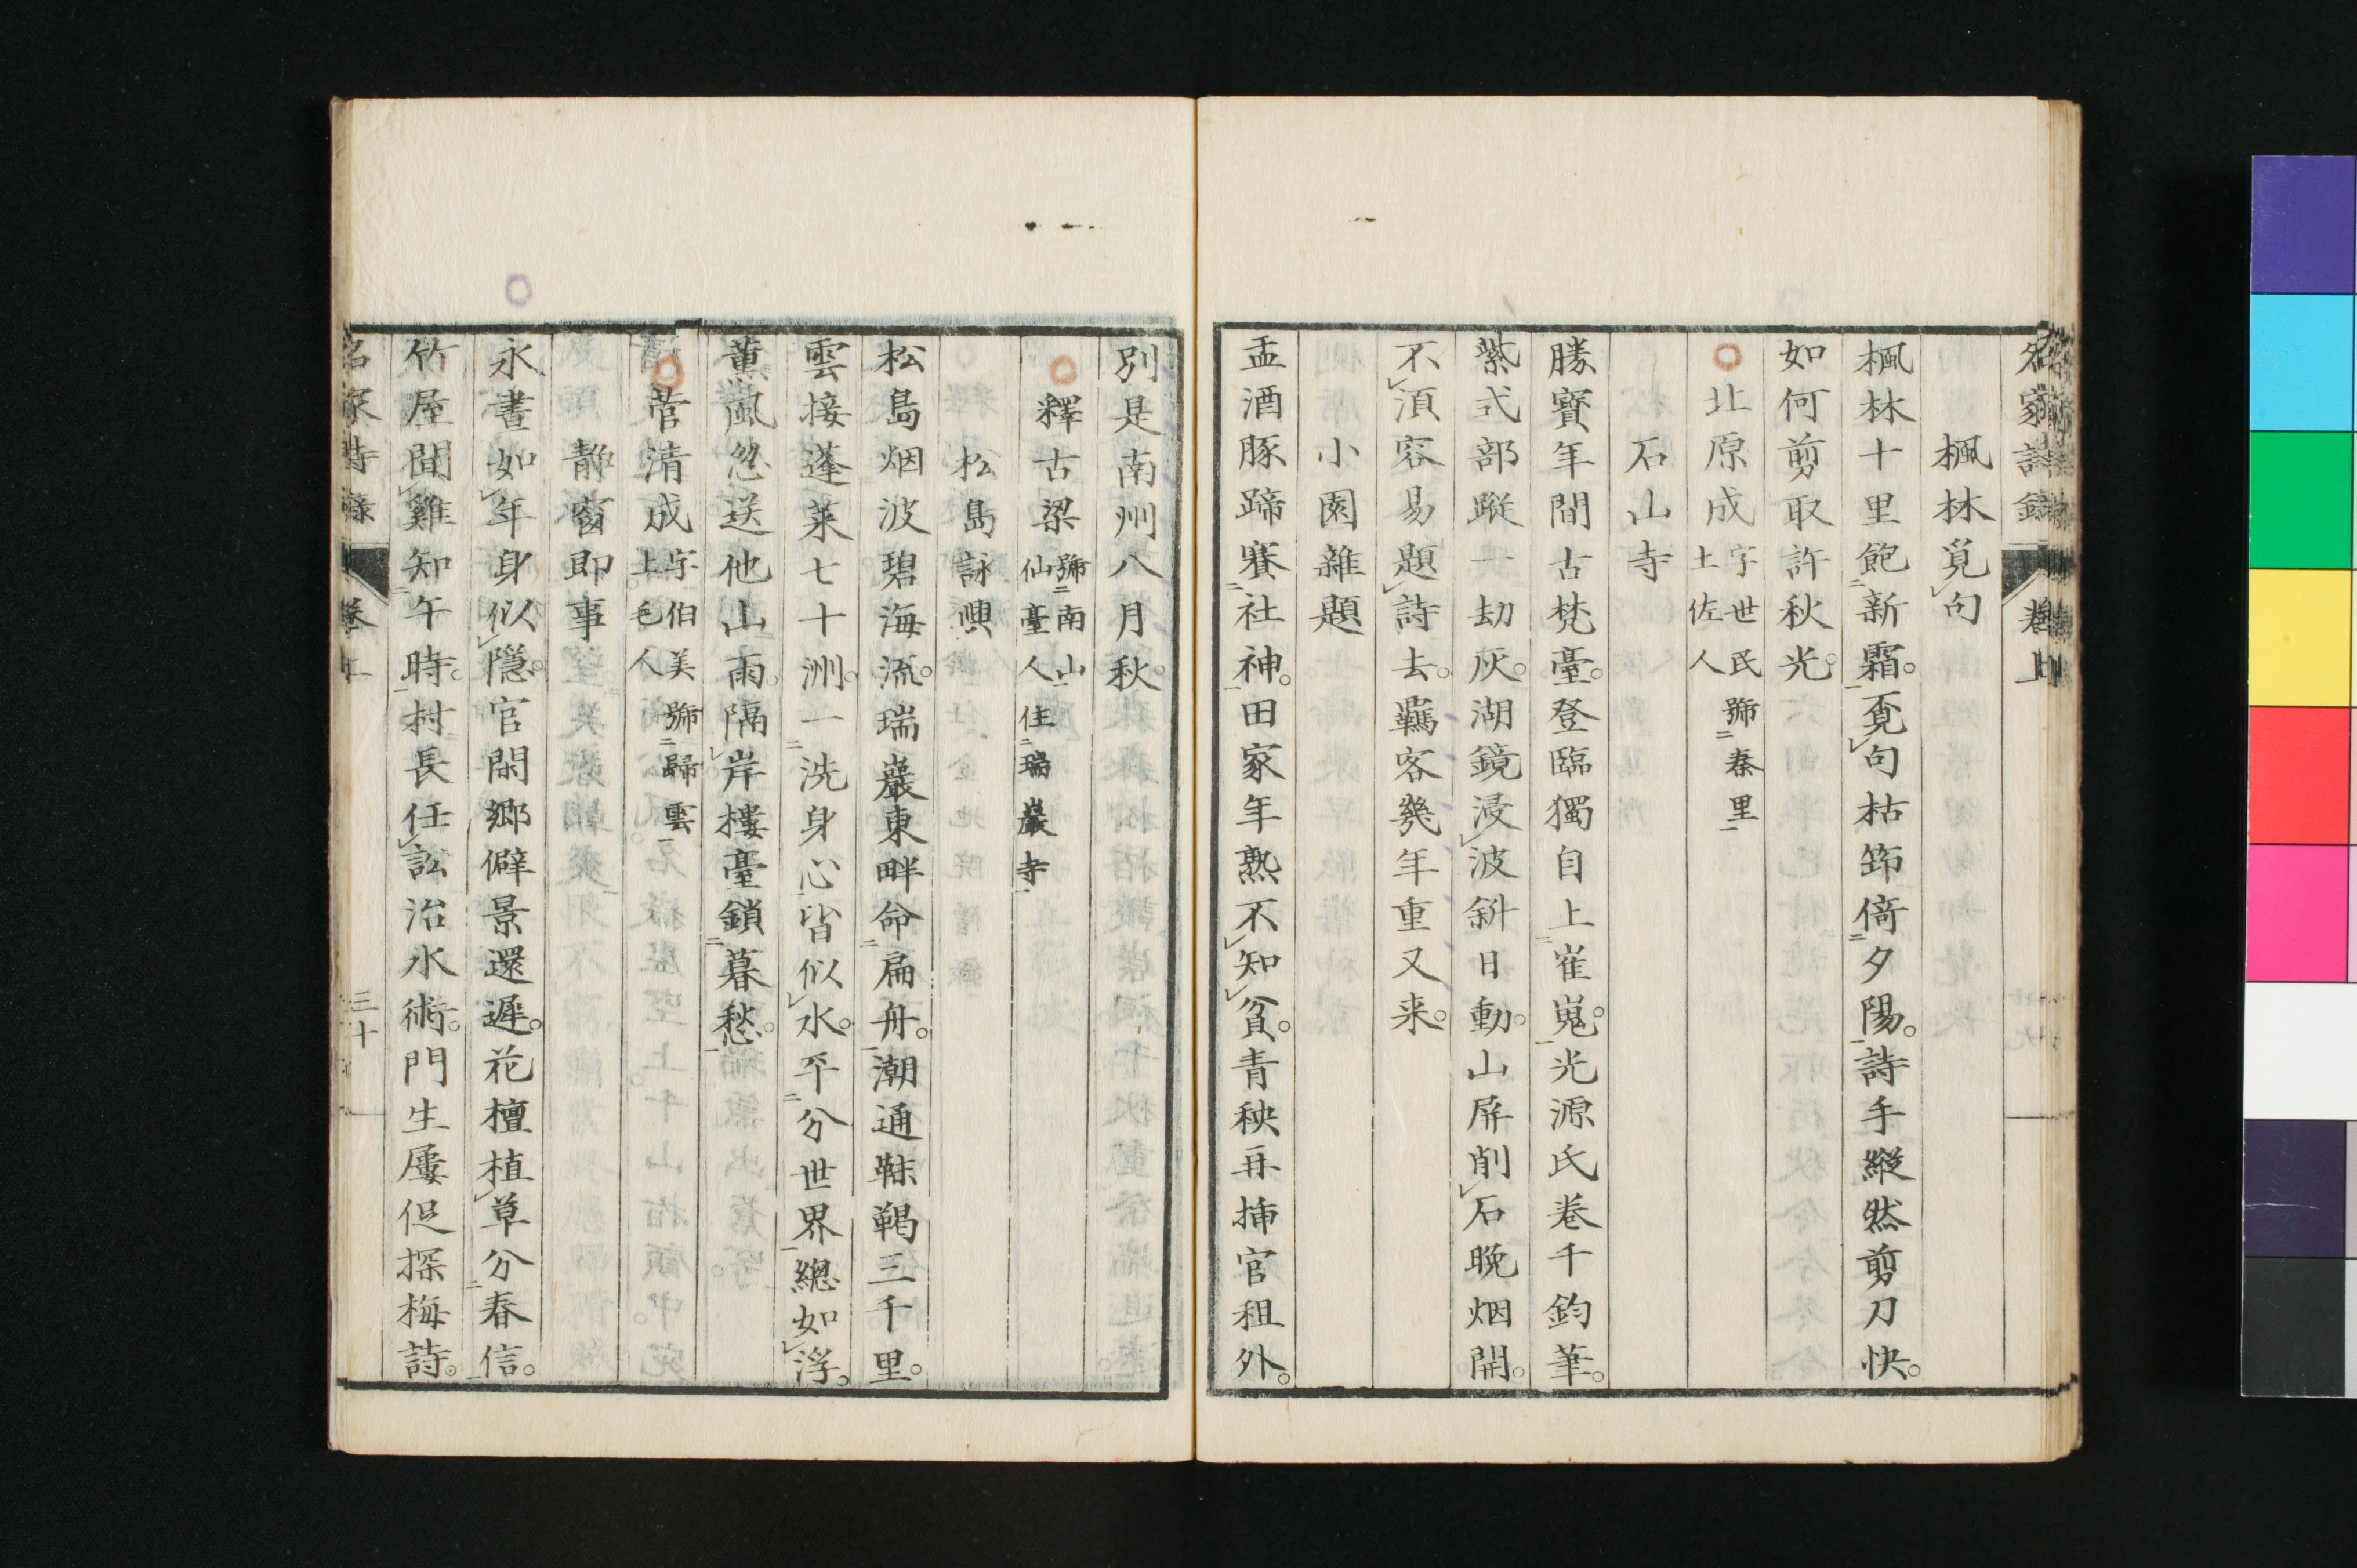 名家詩錄 卷上
楓林覓句
楓林十里飽新霜。覔句枯筇倚夕陽。詩手縱然剪刀快。
如何剪取許秋光。
北原成 字世民號秦里
土佐人
石山寺
勝寶年間古梵臺。登臨獨自上崔嵬。光源氏卷千鈞筆。
紫式部蹤一劫灰。湖鏡浸波斜日動。山屏削石晚烟開。
不須容易題詩去。羈客幾年重又来。
小園雜題
盂酒豚蹄賽社神。田家年熟不知貧。青秧再挿官租外。
別是南州八月秋。
釋古梁 號南山
仙臺人住瑞巖寺
松島詠興
松島烟波碧海流。瑞巖東畔命扁舟。潮通靺鞨三千里。
雲接蓬萊七十洲。一洗身心皆似水。平分世界總如浮。
薰風忽送他山雨。隔岸樓臺鎖暮愁。
菅清成 字伯美號歸雲
上毛人
靜窗即事
永晝如年身似隱。官閑郷僻景還遲。花檀植草分春信。
竹屋聞雞知午時。村長任訟治水術。門生屢促探梅詩。
名家詩錄 卷上 三十